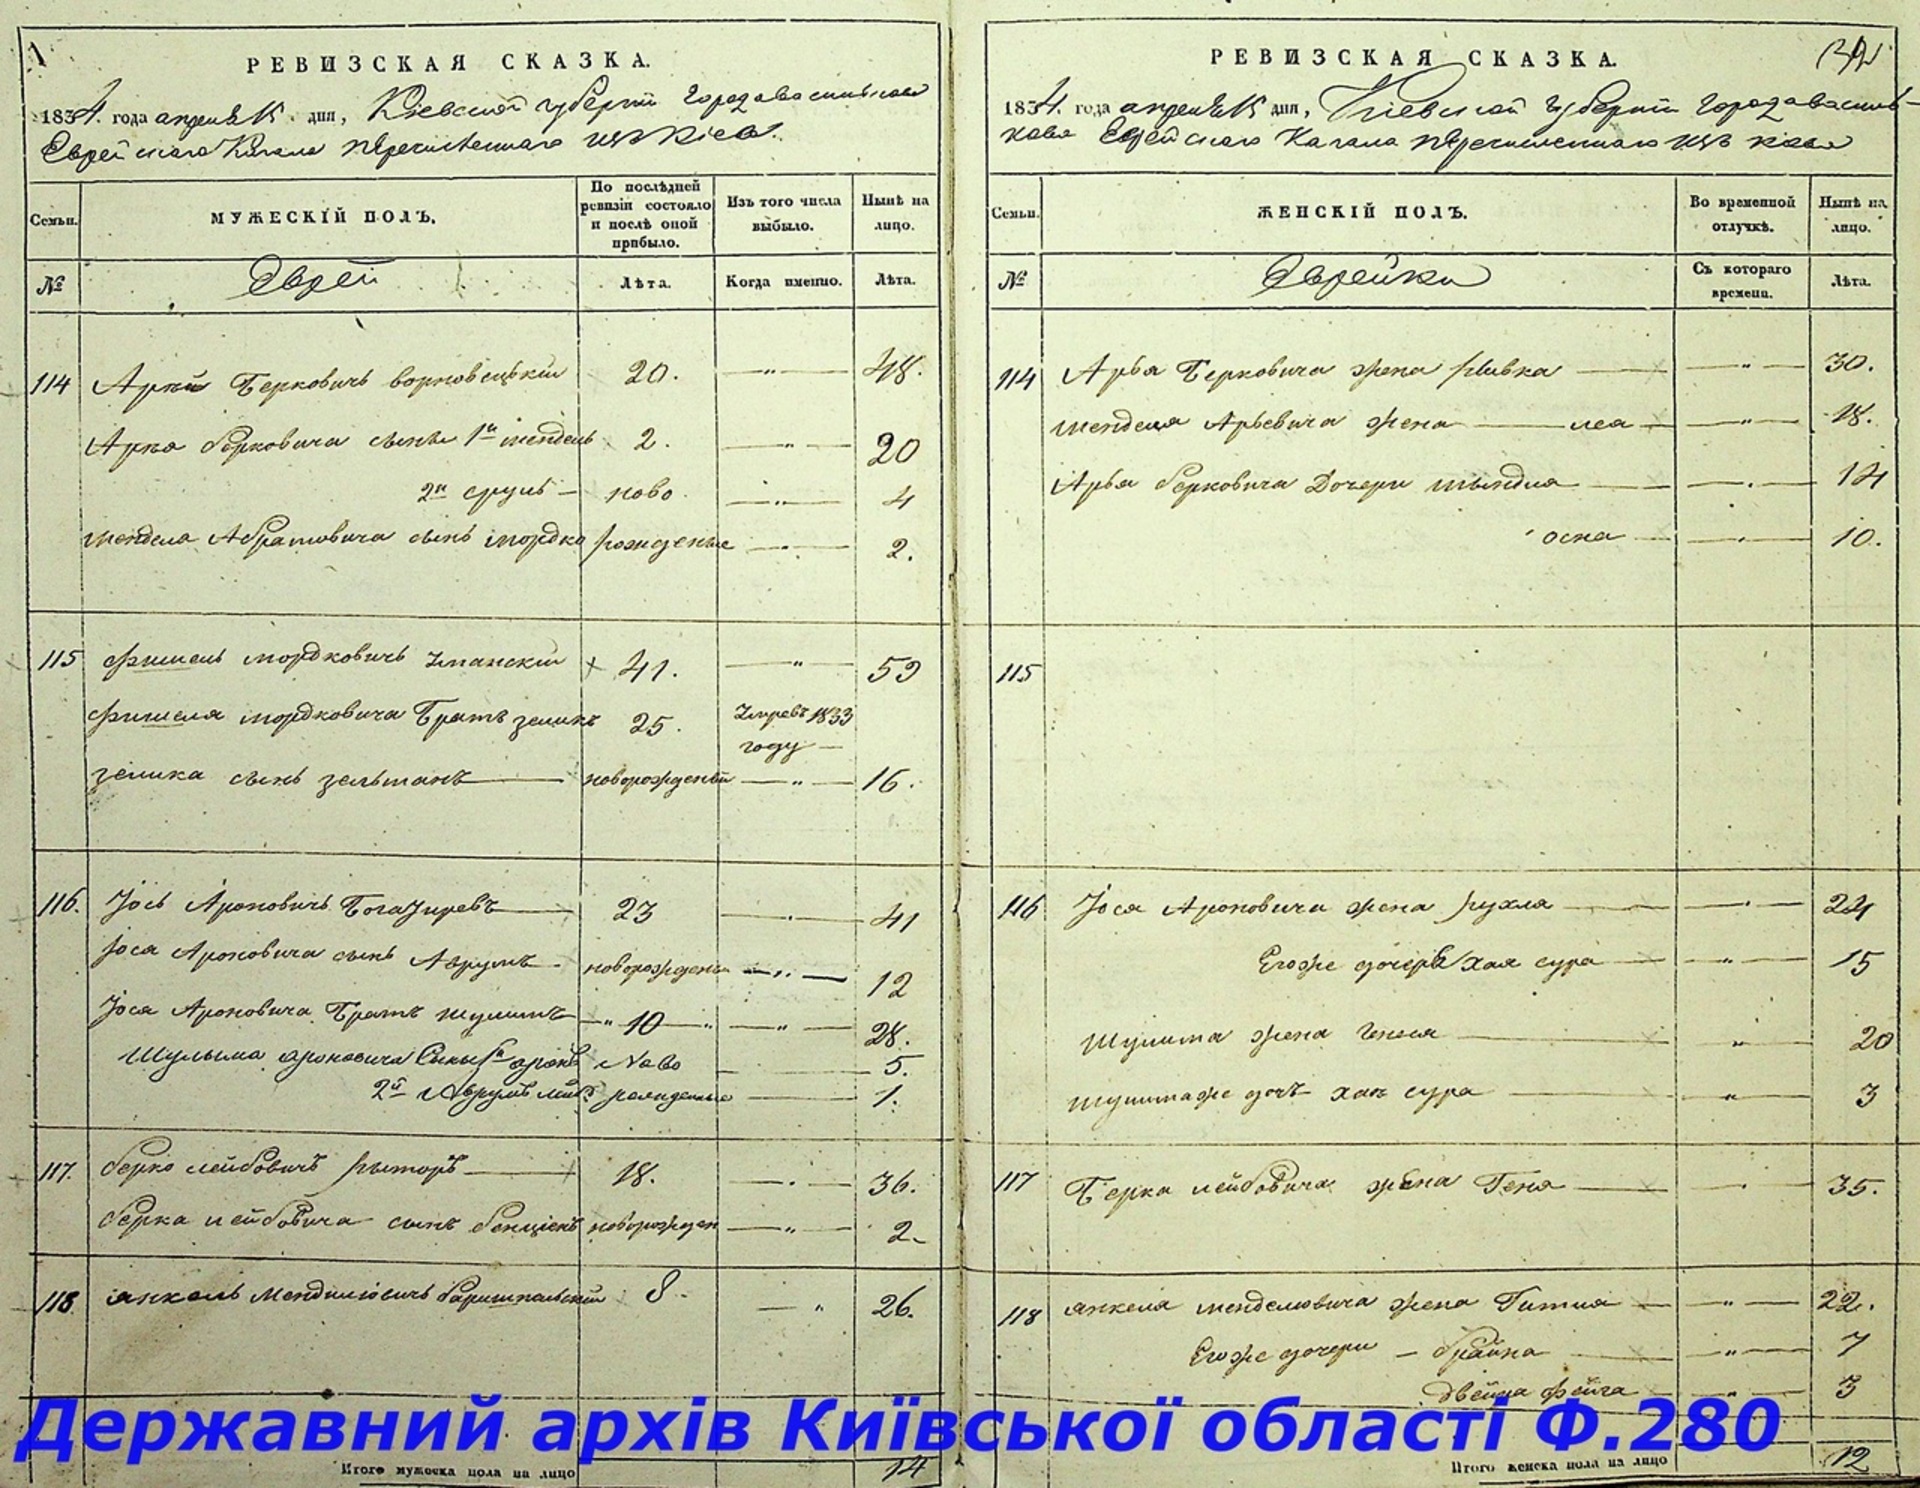 РЕВИЗСКАЯ СКАЗКА.
1834. года апреля 15 дня, Кіевской губерніи города Василькова
Еврейскаго Кагала перечисленнаго изъ Кіева.
Семьи.
МУЖЕСКІЙ ПОЛЪ.
По послѣдней ревизіи состояло и послѣ оной прибыло.
Изъ того числа выбыло.
Нынѣ на лицо.
№
Еврей
Лѣта.
Когда именно.
Лѣта.
114 Арій Берковичъ 20. — „ — 48.
Арья Берковича сынъ 1й Мендель 2. — „ — 20
2й Сруль — ново — „ — 4
Мендела сынъ Мордко рожденные — „ — 2.
115 Фишель Мордковичъ Уманскій 41. — „ — 59
Фишеля Мордковича Братъ Зеликъ 25. Умре въ 1833 году —
Зелика сынъ Зельманъ новорожденый — „ — 16.
116. Іось Ароновичъ Богатыревъ 23 — „ — 41
Іося Ароновича сынъ Аврумъ новорожденъ — „ — 12
Іося Ароновича Братъ Шулимъ — „ 10 — „ — „ — 28.
Шулыма Ароновича Сыны Аронъ Ново — 5.
2й Аврумъ рожденные — 1.
117. Берко Лейбовичъ 18. — „ — 36.
Берка Лейбовича сынъ Бенціонъ новорожден — „ — 2.
118 Янкель Менделіовичъ Баришпольскій 8. — „ 26.
Итого мужеска пола на лицо 14
РЕВИЗСКАЯ СКАЗКА.
1834. года апреля 15 дня, Кіевской губерніи города Василь-
кова Еврейскаго Кагала перечисленнаго изъ Кіева
Семьи.
ЖЕНСКІЙ ПОЛЪ.
Во временной отлучкѣ.
Нынѣ на лицо.
№
Еврейки
Съ котораго времени.
Лѣта.
114 Арья Берковича жена Ривка — „ — 30.
Менделя Арьевича жена — Леа — „ — 18.
Арья Берковича Дочери — „ — 14
Осна — „ — 10.
115
116 Іося Ароновича жена Рухля — „ — 24
Егоже дочерь Хая Сура — „ — 15
Шулима жена — „ 20
Шулимаже дочь Хая Сура — „ 3
117 Берка Лейбовича жена Геня — „ — 35.
118 Янкеля Менделіовича жена Гитля — „ — 22.
Егоже дочери — Брайна — „ — 7
Двейра Фейга — „ — 3
Державний архів Київської області Ф.280
Итого женска пола на лицо 12